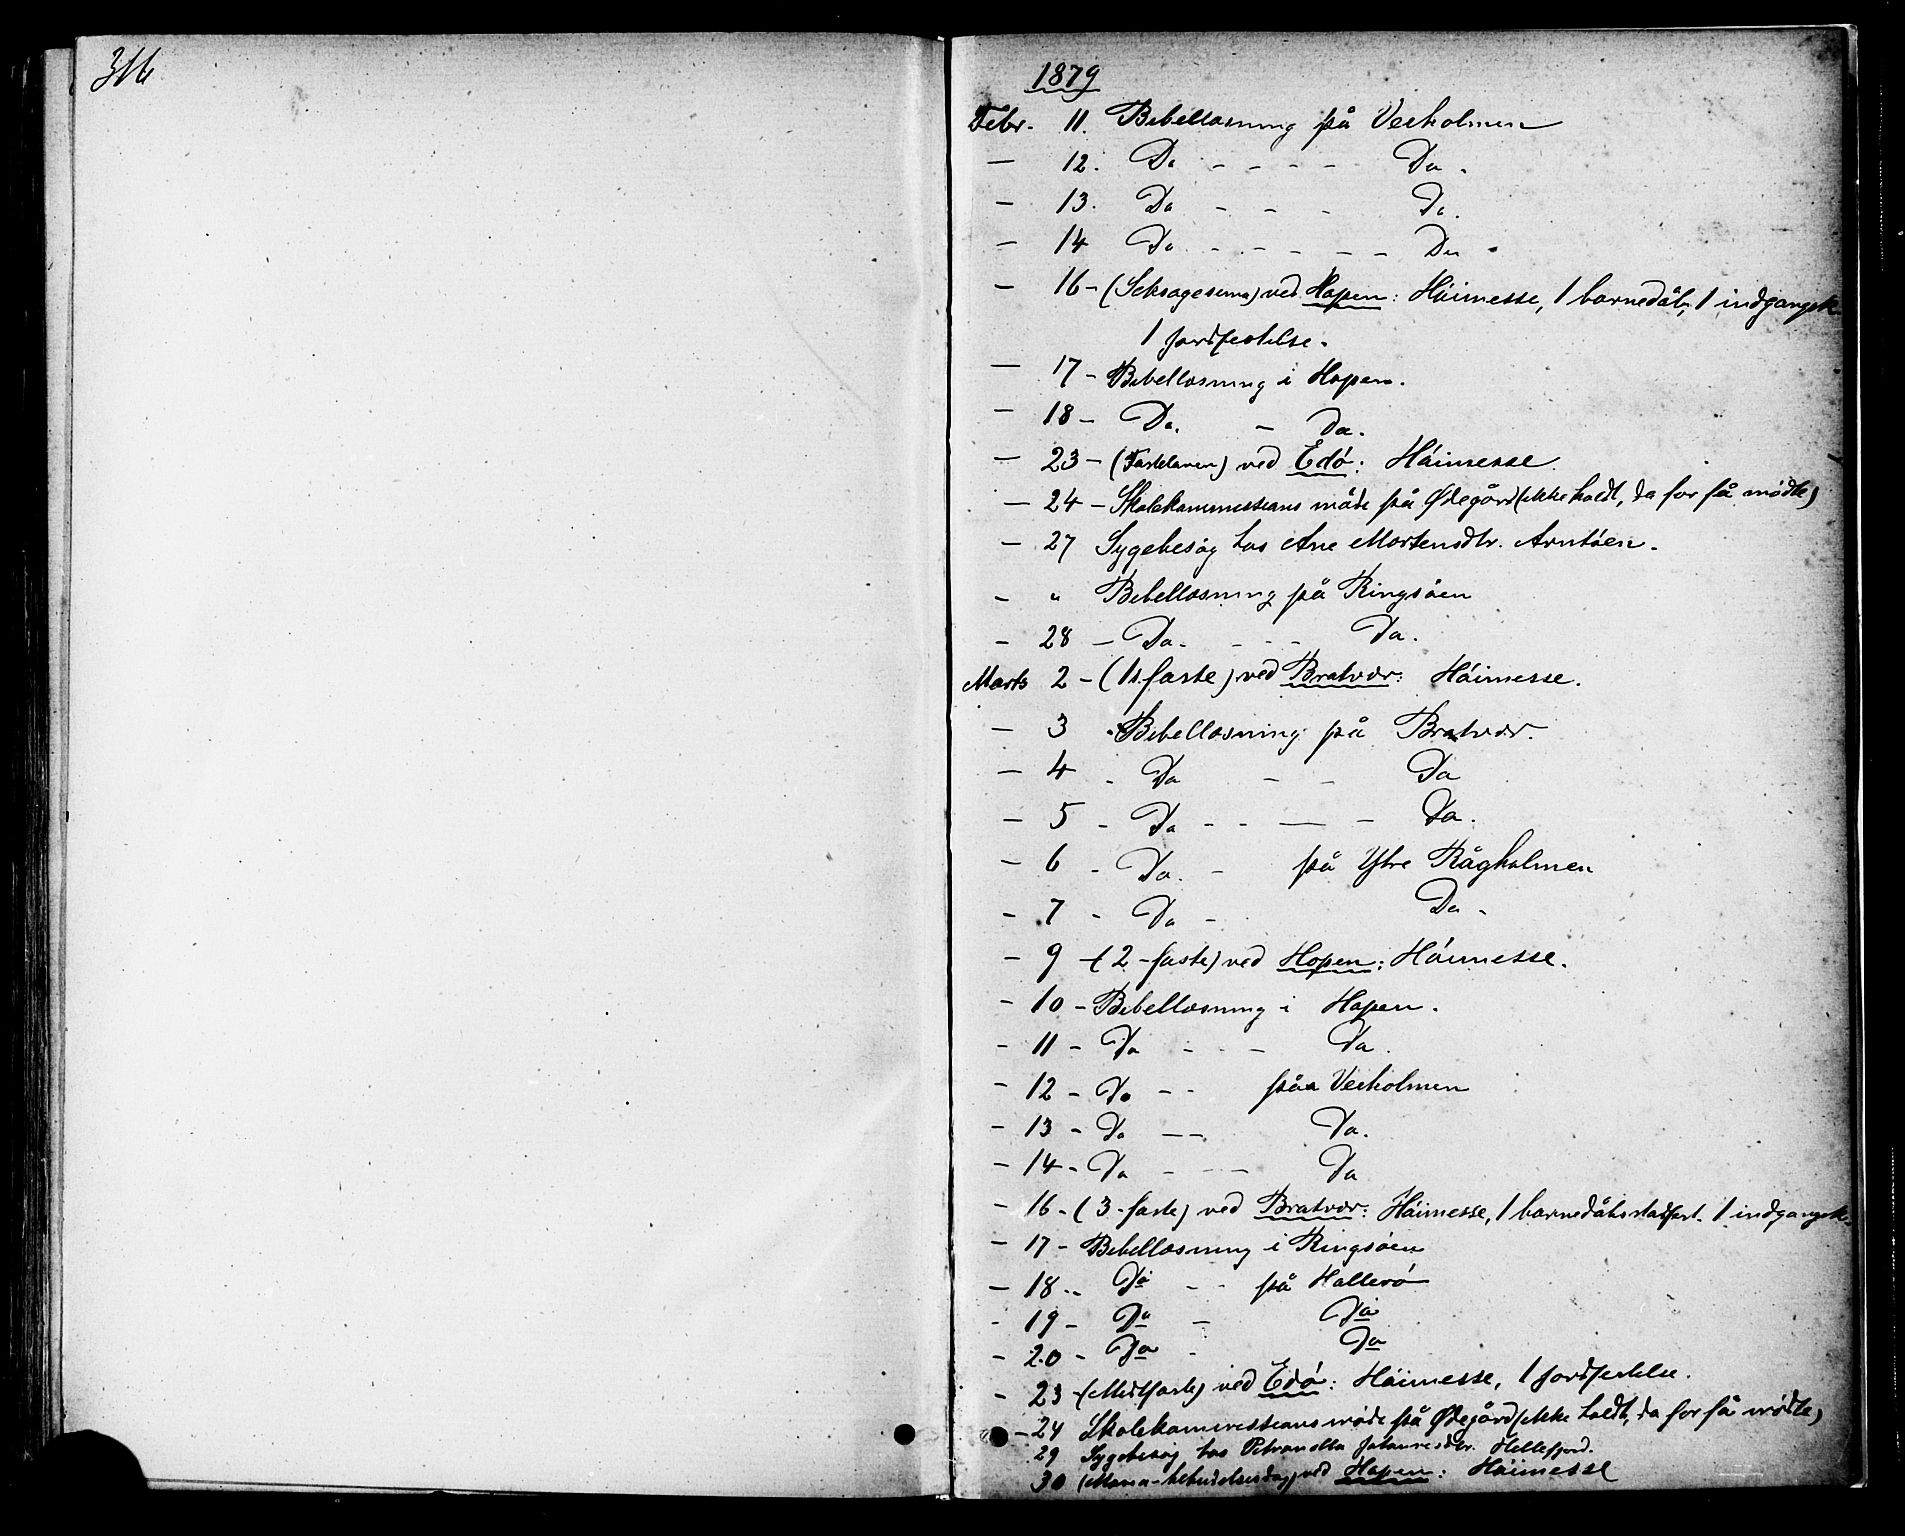 316
1879
Febr. 11. Bibellæsning på Veiholmen
— 12. Do - - - - Do.
— 13. Do - - - Do.
— 14 Do - - - - - Do
— 16 - (Seksagesima) ved Hopen: Höimesse, 1 barnedåb, 1 indgangsk.
1 jordfestelse.
— 17 - Bibellæsning i Hopen.
— 18 - Do. - Do.
— 23 - (Fastelaven) ved Edö: Höimesse.
— 24 - Skolekommissions möde på Ødegård (ikke holdt, da for få mödte)
— 27 Sygebesög hos Ane Mortensdtr. Arntöen.
— " Bibellæsning på Ringsöen
— 28 - Do. - - - Do.
Marts 2 - (1s. faste) ved Bratvær: Höimesse.
— 3 - Bibellæsning på Bratvær.
— 4 - Do - - Do
— 5 - Do - - — - Do.
— 6 - Do. - på Ytre Rågholmen
— 7 - Do - Do -
— 9 - (2 - faste) ved Hopen: Höimesse.
— 10 - Bibellæsning i Hopen.
— 11 - Do - - - Do.
— 12 - Do - - på Veiholmen
— 13 - Do — - Do.
— 14 - Do - - - Do
— 16 - (3 - faste) ved Bratvær: Höimesse, 1 barnedåbsstadfest. 1 indgangsk.
— 17 - Bibellæsning i Ringsöen
— 18 - Do - - på Hallerö
- 19 - Do - Do
— 20 - Do - Do
— 23 - (Midtfaste) ved Edö: Höimesse, 1 jordfestelse.
— 24 Skolekommissions möde på Ødegård (ikke holdt, da for få mödte)
29 Sygebesög hos Petronella Johannesdtr. Hellefjord.
30 (Maria-bebudelsesdag) ved Hopen: Höimesse